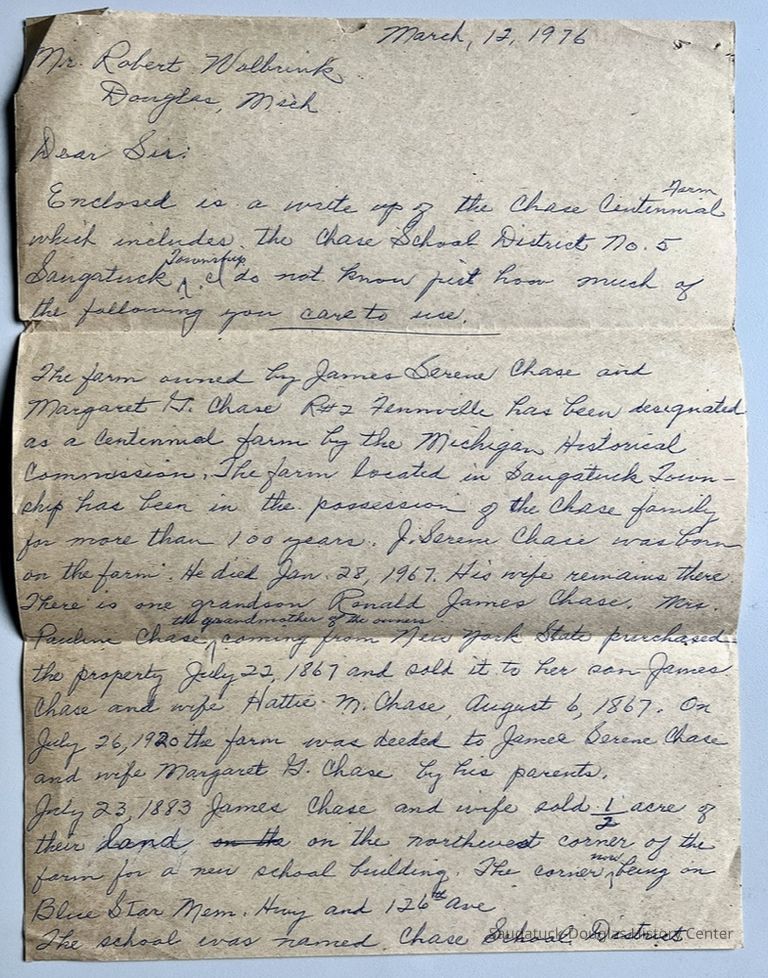 March, 12, 1976
Mr. Robert Wolbrink
Douglas, Mich
Dear Sir:
Enclosed is a write up of the Chase Centennial Farm
which includes the Chase School District No. 5
Saugatuck Township. I do not know just how much of
the following you care to use.
The farm owned by James Serene Chase and
Margaret G. Chase R#2 Fennville has been designated
as a Centennial farm by the Michigan Historical
Commission. The farm located in Saugatuck Town-
ship has been in the possession of the Chase family
for more than 100 years. J. Serene Chase was born
on the farm. He died Jan. 28, 1967. His wife remains there.
There is one grandson Ronald James Chase. Mrs.
Pauline Chase, the grandmother of the owners coming from New York State purchased
the property July 22, 1867 and sold it to her son James
Chase and wife Hattie M. Chase, August 6, 1867. On
July 26, 1920 the farm was deeded to James Serene Chase
and wife Margaret G. Chase by his parents.
July 23, 1883 James Chase and wife sold 1/2 acre of
their land, on the on the northwest corner of the
farm for a new school building. The corner now being on
Blue Star Mem. Hwy and 126th Ave
The school was named Chase School District
Saugatuck-Douglas History Center